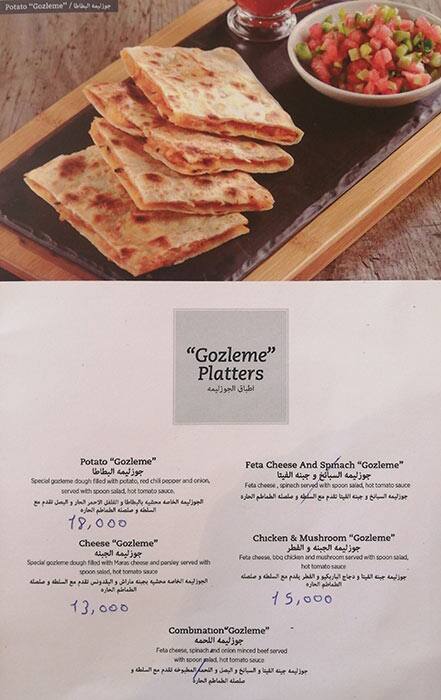 Potato "Gozleme" / جوزليمة البطاطا
"Gozleme"
Platters
اطباق الجوزليمه
Potato "Gozleme"
جوزليمه البطاطا
Special gozleme dough filled with potato, red chili pepper and onion,
served with spoon salad, hot tomato sauce.
الجوزليمه الخاصه محشيه بالبطاطا و الفلفل الاحمر الحار و البصل تقدم مع
السلطه و صلصله الطماطم الحاره
18,000
Feta Cheese And Spinach "Gozleme"
جوزليمه السبانخ و جبنه الفيتا
Feta cheese , spinach served with spoon salad, hot tomato sauce
جوزليمه السبانخ و جبنة الفيتا تقدم مع السلطه و صلصله الطماطم الحاره
Cheese "Gozleme"
جوزليمه الجبنه
Special gozleme dough filled with Maras cheese and parsley served with
spoon salad, hot tomato sauce
الجوزليمه الخاصه محشيه بجبنه ماراش و البقدونس تقدم مع السلطه و صلصله
الطماطم الحاره
13,000
Chicken & Mushroom "Gozleme"
جوزليمه الجبنه و الفطر
Feta cheese, bbq chicken and mushroom served with spoon salad,
hot tomato sauce
جوزليمه جبنه الفيتا و دجاج الباربكيو و الفطر يقدم مع السلطه و صلصله
الطماطم الحاره
15,000
Combination"Gozleme"
جوزليمه اللحمه
Feta cheese, spinach and onion minced beef served
with spoon salad, hot tomato sauce
جوزليمه جبنه الفيتا و السبانخ و البصل و اللحمه المطبوخه تقدم مع السلطه و
صلصله الطماطم الحاره